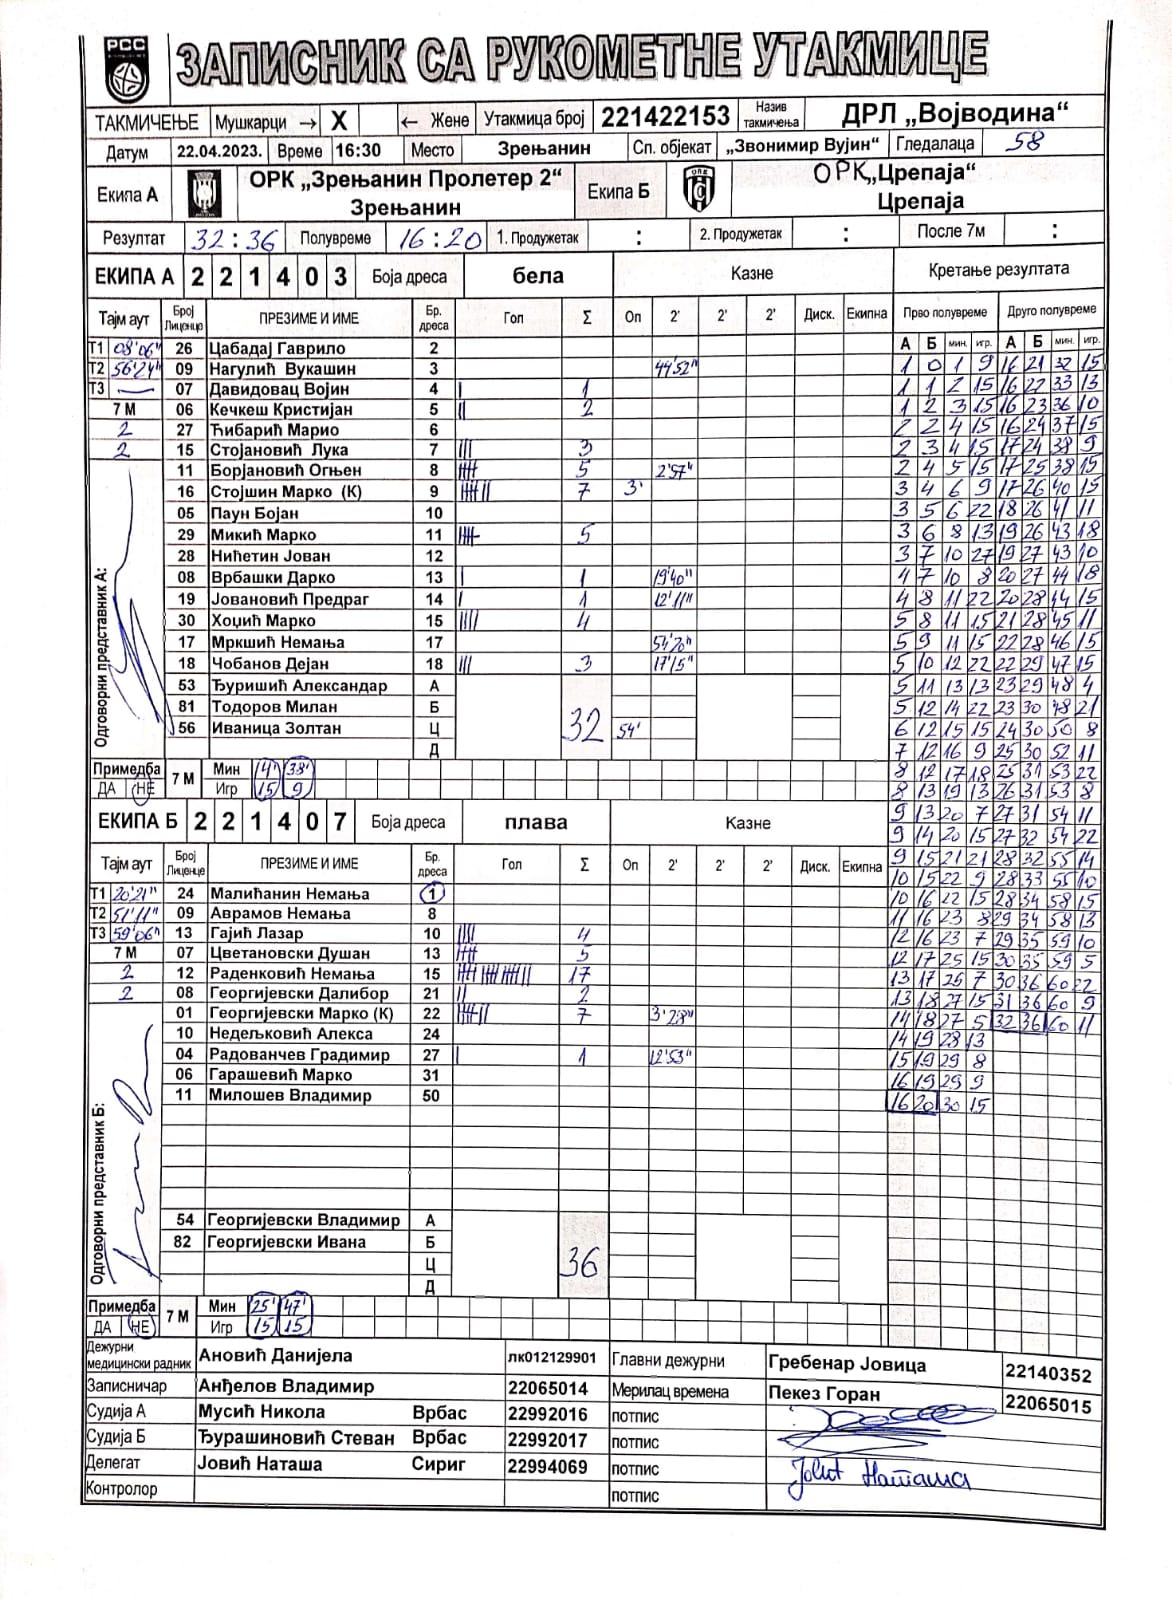 РСС
ЗАПИСНИК СА РУКОМЕТНЕ УТАКМИЦЕ
ТАКМИЧЕЊЕ Мушкарци → X ← Жене Утакмица број 221422153 Назив такмичења ДРЛ „Војводина“
Датум 22.04.2023. Време 16:30 Место Зрењанин Сп. објекат „Звонимир Вујин“ Гледалаца 58
Екипа А ОРК „Зрењанин Пролетер 2“ Зрењанин Екипа Б ОРК „Црепаја“ Црепаја
Резултат 32:36 Полувреме 16:20 1. Продужетак : 2. Продужетак : После 7м :
ЕКИПА А 2 2 1 4 0 3 Боја дреса бела Казне Кретање резултата
Тајм аут Број Лиценце ПРЕЗИМЕ И ИМЕ Бр. дреса Гол Σ Оп 2' 2' 2' Диск. Екипна Прво полувреме Друго полувреме
Т1 08'06" 26 Цабадај Гаврило 2 А Б мин. игр. А Б мин. игр.
Т2 56'24" 09 Нагулић Вукашин 3 44'52" 1 0 1 9 16 21 32 15
Т3 — 07 Давидоваш Војин 4 1 1 1 2 15 16 22 33 13
7 М 06 Кечкеш Кристијан 5 2 1 2 3 15 16 23 36 10
2 27 Ћибарић Марио 6 2 2 4 15 16 24 37 15
2 15 Стојановић Лука 7 3 2 3 4 15 17 24 38 9
11 Борјановић Огњен 8 5 2'57" 2 4 5 15 17 25 38 15
16 Стојшин Марко (К) 9 7 3' 3 4 6 9 17 26 40 15
05 Паун Бојан 10 3 5 6 22 18 26 41 11
29 Микић Марко 11 5 3 6 8 13 19 26 43 18
28 Нићетин Јован 12 3 7 10 27 19 27 43 10
08 Врбашки Дарко 13 1 19'40" 4 7 10 8 20 27 44 18
19 Јовановић Предраг 14 1 12'11" 4 8 11 22 20 28 44 15
30 Хоцић Марко 15 4 5 8 11 15 21 28 45 11
17 Мркшић Немања 17 54'20" 5 9 11 15 22 28 46 15
18 Чобанов Дејан 18 3 17'15" 5 10 12 22 22 29 47 15
53 Ђуришић Александар А 5 11 13 13 23 29 48 4
81 Тодоров Милан Б 32 5 12 14 22 23 30 48 21
56 Иваница Золтан Ц 54' 6 12 15 15 24 30 50 8
Д 7 12 16 9 25 30 52 11
Одговорни представник А:
Примедба 7 М Мин 14' 38' 8 12 17 18 25 31 53 22
ДА НЕ Игр 15 9 8 13 19 13 26 31 53 8
ЕКИПА Б 2 2 1 4 0 7 Боја дреса плава Казне 9 13 20 7 27 31 54 11
9 14 20 15 27 32 54 22
Тајм аут Број Лиценце ПРЕЗИМЕ И ИМЕ Бр. дреса Гол Σ Оп 2' 2' 2' Диск. Екипна 9 15 21 21 28 32 55 14
Т1 20'21" 24 Малићанин Немања 1 10 15 22 9 28 33 55 10
10 16 22 15 28 34 58 15
Т2 51'11" 09 Аврамов Немања 8 11 16 23 8 29 34 58 13
Т3 59'06" 13 Гајић Лазар 10 4 12 16 23 7 29 35 59 10
7 М 07 Цветановски Душан 13 5 12 17 25 15 30 35 59 5
2 12 Раденковић Немања 15 17 13 17 26 7 30 36 60 22
2 08 Георгијевски Далибор 21 2 13 18 27 15 31 36 60 9
01 Георгијевски Марко (К) 22 7 3'28" 14 18 27 5 32 36 60 11
10 Недељковић Алекса 24 14 19 28 13
04 Радованчев Градимир 27 1 12'53" 15 19 29 8
06 Гарашевић Марко 31 16 19 29 9
11 Милошев Владимир 50 16 20 30 15
Одговорни представник Б:
54 Георгијевски Владимир А
82 Георгијевски Ивана Б 36
Ц
Д
Примедба 7 М Мин 25' 47'
ДА НЕ Игр 15 15
Дежурни медицински радник Ановић Данијела лк012129901 Главни дежурни Гребенар Јовица 22140352
Записничар Анђелов Владимир 22065014 Мерилац времена Пекез Горан 22065015
Судија А Мусић Никола Врбас 22992016 потпис
Судија Б Ђурашиновић Стеван Врбас 22992017 потпис
Делегат Јовић Наташа Сириг 22994069 потпис Јовић Наташа
Контролор потпис